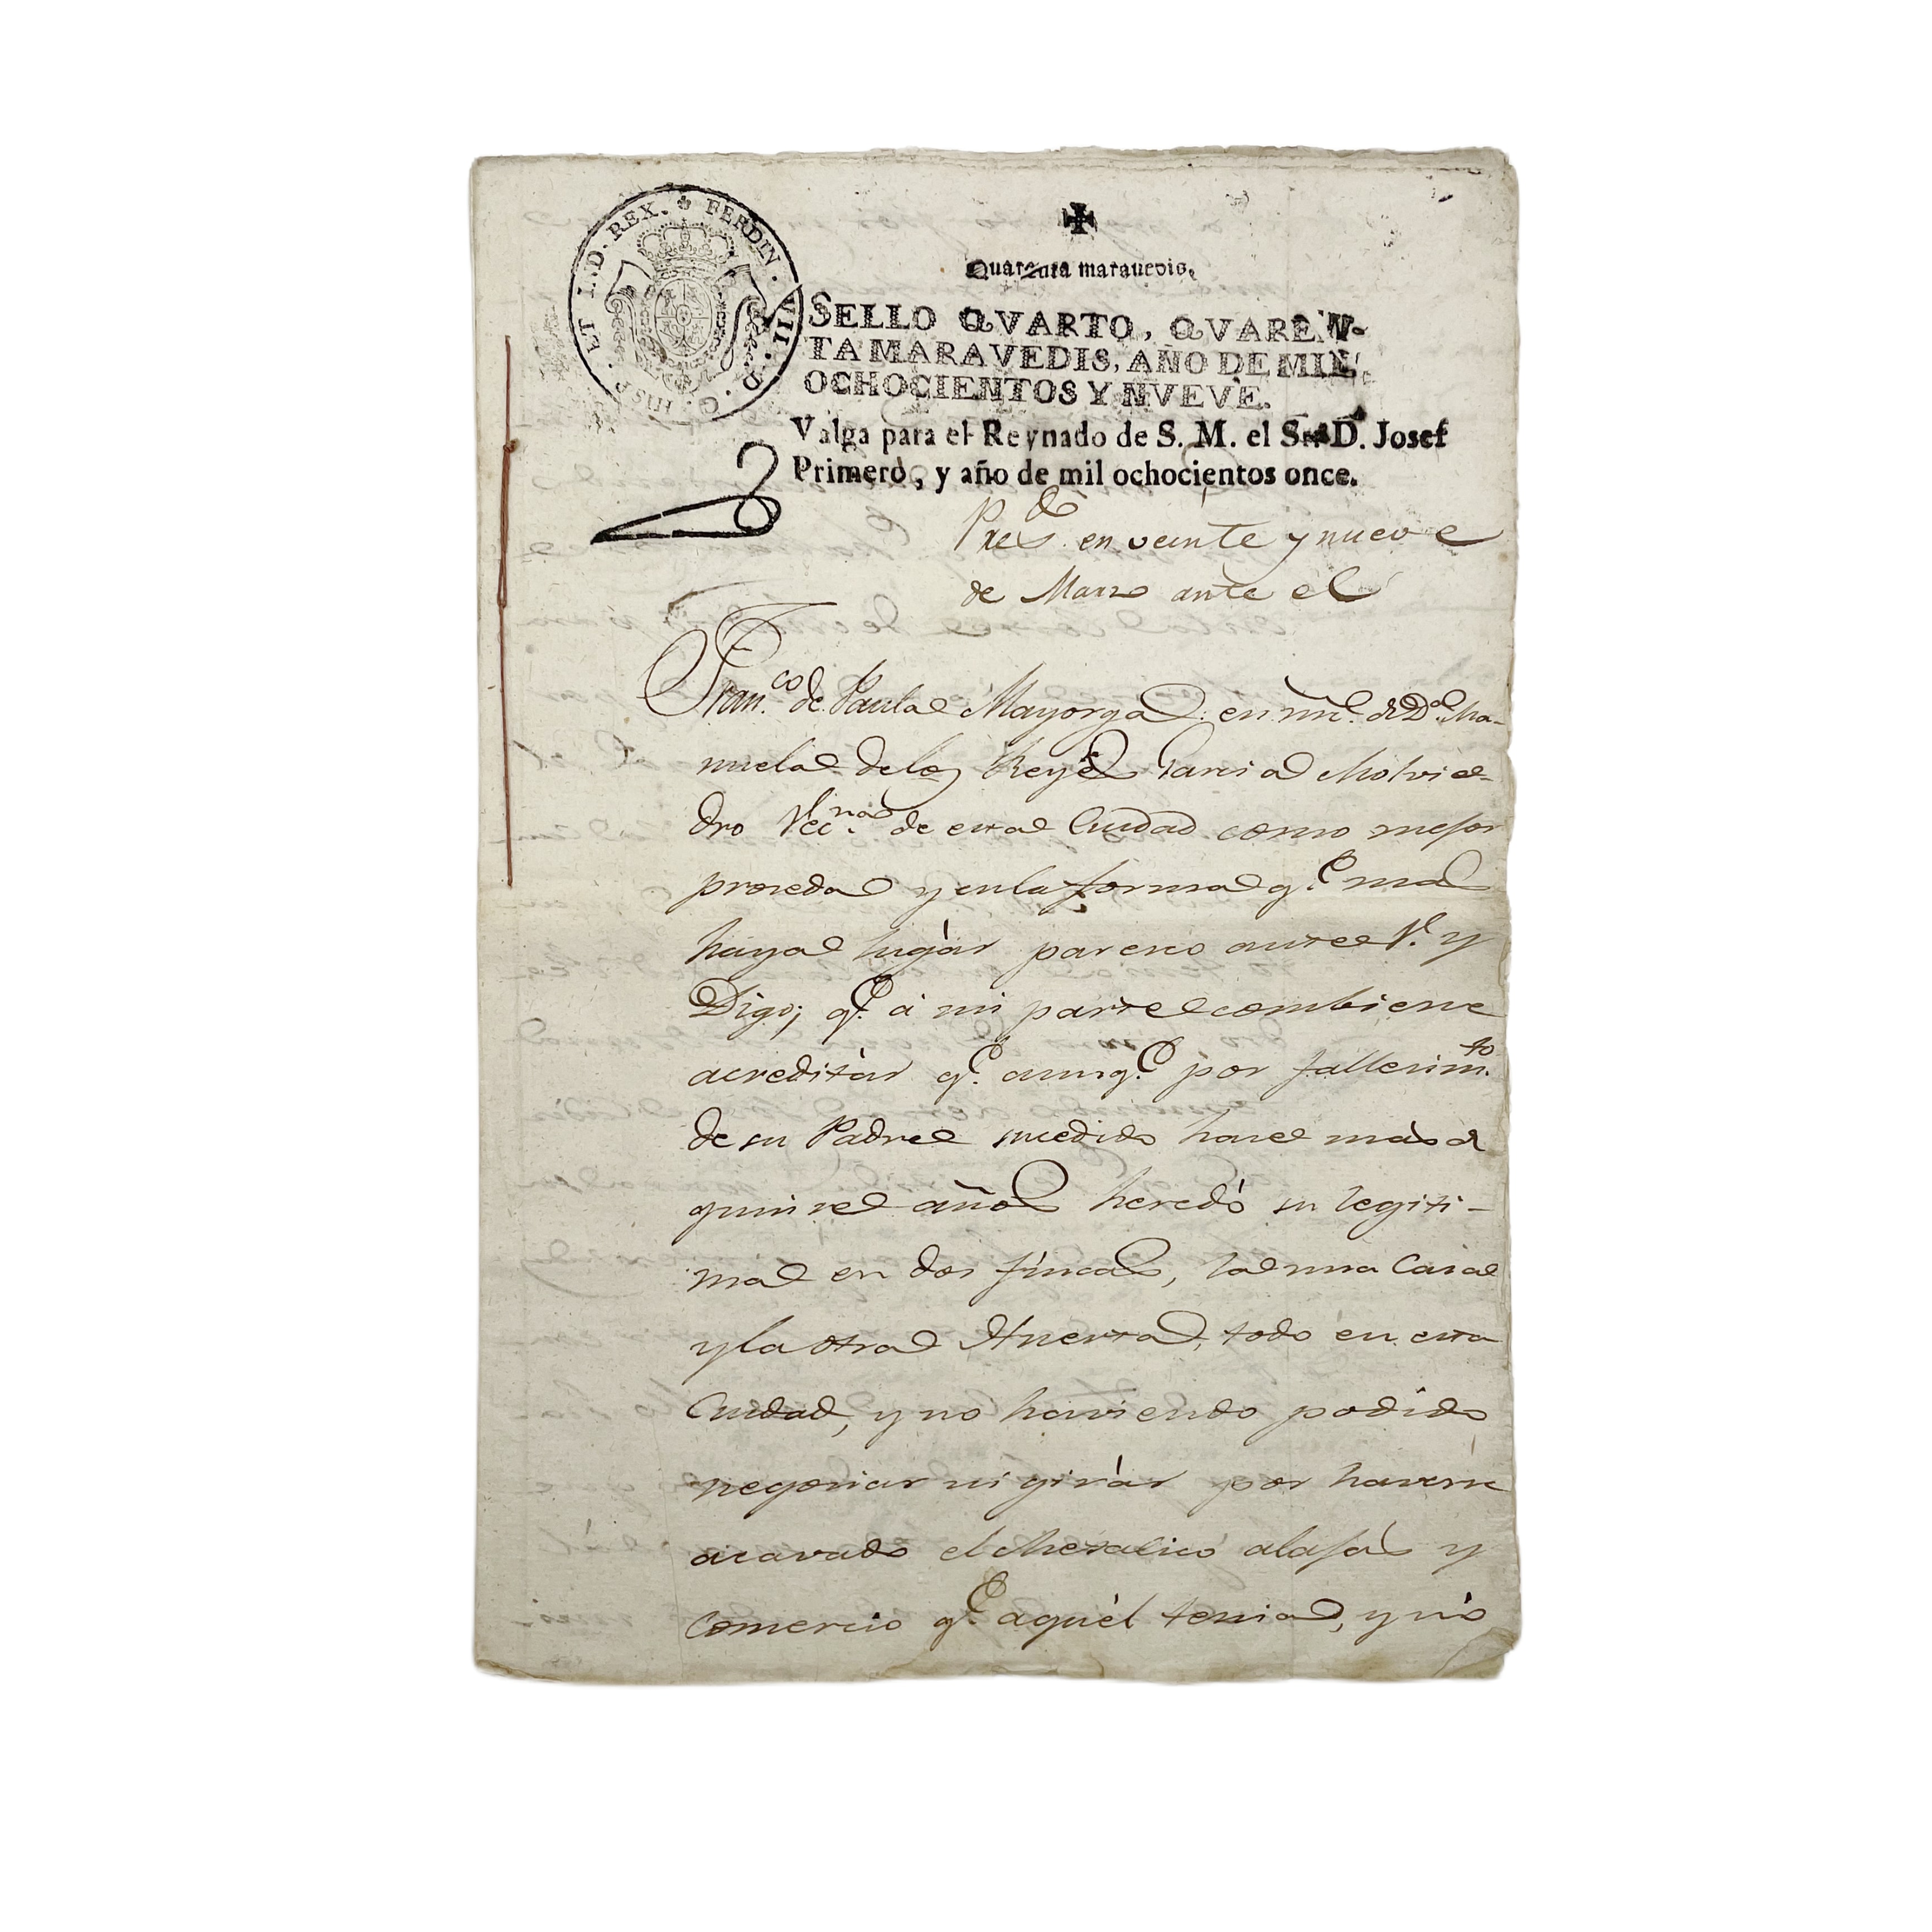 HISP. ET I. D. REX. FERDIN. VII. D. G.
Quarenta maravedis.
SELLO QVARTO, QVAREN-
TA MARAVEDIS, AÑO DE MIL
OCHOCIENTOS Y NVEVE.
Valga para el Reynado de S. M. el Sr. D. Josef
Primero, y año de mil ochocientos once.
Presdo. en veinte y nueve
de Marzo ante el
Franco. de Paula Mayorga en nre. de Da. Ma-
nuela de los Reyes Garcia Molvie-
dro Vecna. de esta Ciudad como mejor
proceda y en la forma qe. mas
haya lugàr paresco ante V. y
Digo; qe. à mi parte combiene
acreditàr qe. aunqe. por fallecimto.
de su Padre sucedido hace màs de
quince años heredò su legiti-
ma en dos fincas, la una Casa
y la otra Huerta, todo en esta
Ciudad, y no haviendo podido
negociar ni giràr por haverse
acavado el Metalico alajas y
Comercio qe. aquèl tenia, y nò